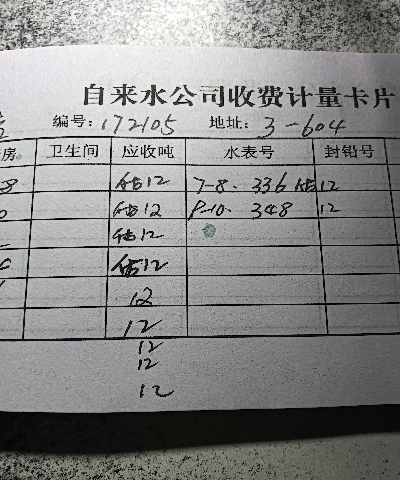 自来水公司收费计量卡片
编号: 172105 地址: 3-604
房 卫生间 应收吨 水表号 封铅号
8 估12 7-8. 336 估12
估12 9-10. 348 12
估12
估12
12
12
12
12
12